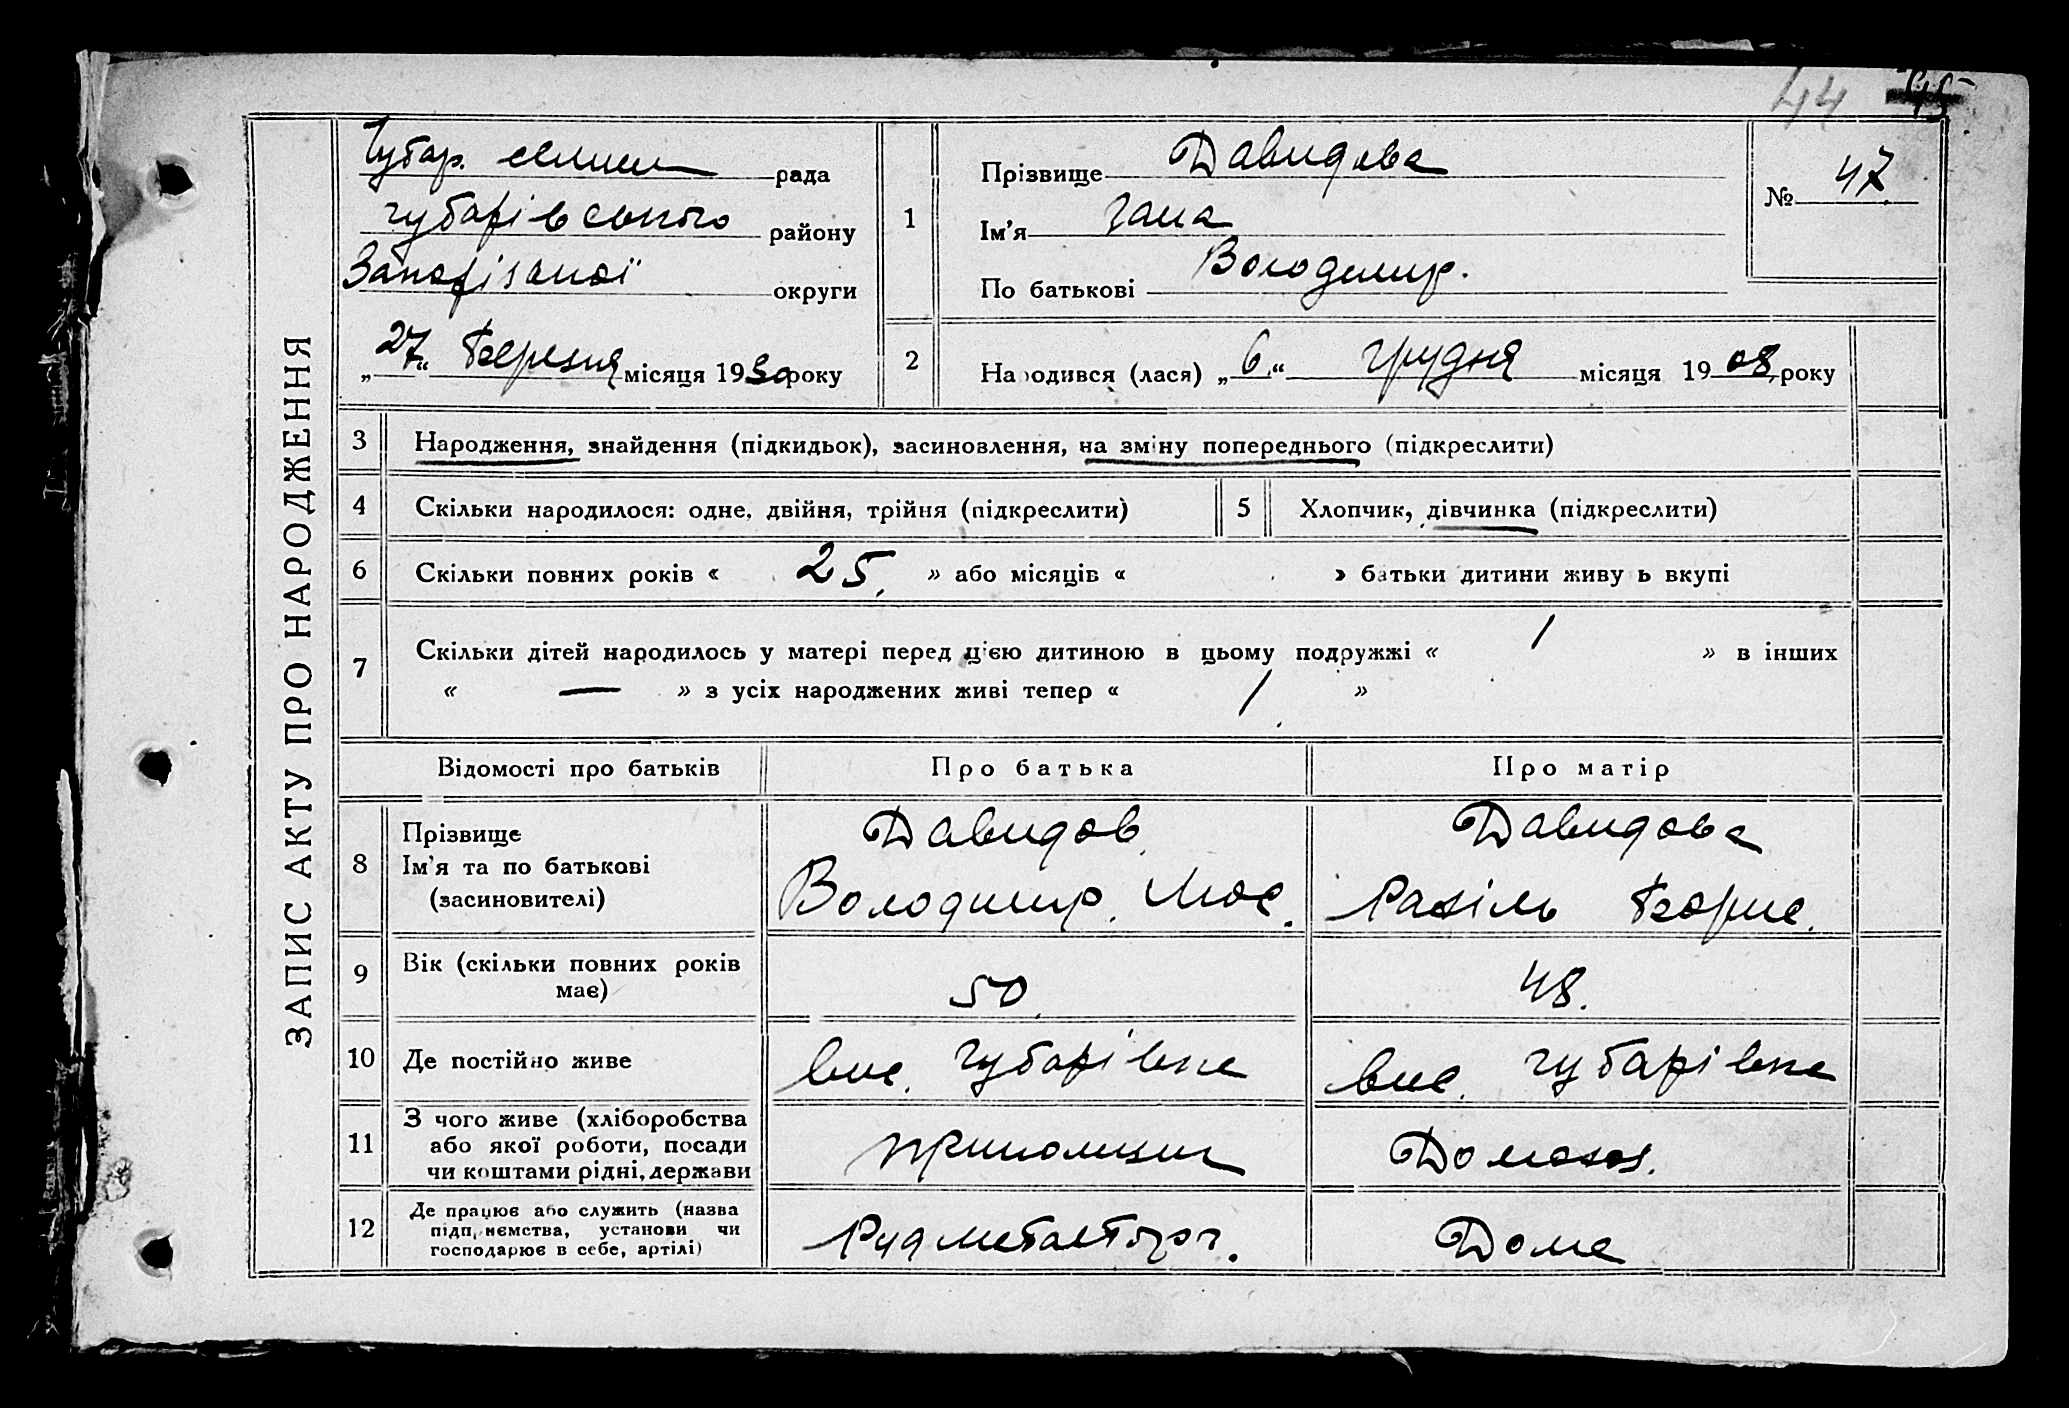 44 45
Чубар. селищн рада
Чубарівського району
Запорізької округи
„27“ Березня місяця 1930 року
ЗАПИС АКТУ ПРО НАРОДЖЕННЯ
1
Прізвище Давидова
Ім'я Гана
По батькові Володимир.
№ 47
2
Народився (лася) „6“ грудня місяця 1908 року
3 Народження, знайдення (підкидьок), засиновлення, на зміну попереднього (підкреслити)
4 Скільки народилося: одне, двійня, трійня (підкреслити) 5 Хлопчик, дівчинка (підкреслити)
6 Скільки повних років « 25. » або місяців « » батьки дитини живуть вкупі
7 Скільки дітей народилось у матері перед цією дитиною в цьому подружжі « 1 » в інших
« — » з усіх народжених живі тепер « 1 »
Відомості про батьків Про батька Про матір
8 Прізвище
Ім'я та по батькові
(засиновителі)
Давидов
Володимир. Мос.
Давидова
Рахіль Борис.
9 Вік (скільки повних років
має)
50 48.
10 Де постійно живе
вис. Чубарівка вис. Чубарівка
11 З чого живе (хліборобства
або якої роботи, посади
чи коштами рідні, держави
Домогос.
12 Де працює або служить (назва
підприємства, установи чи
господарює в себе, артілі)
Рудметалторг. Дома